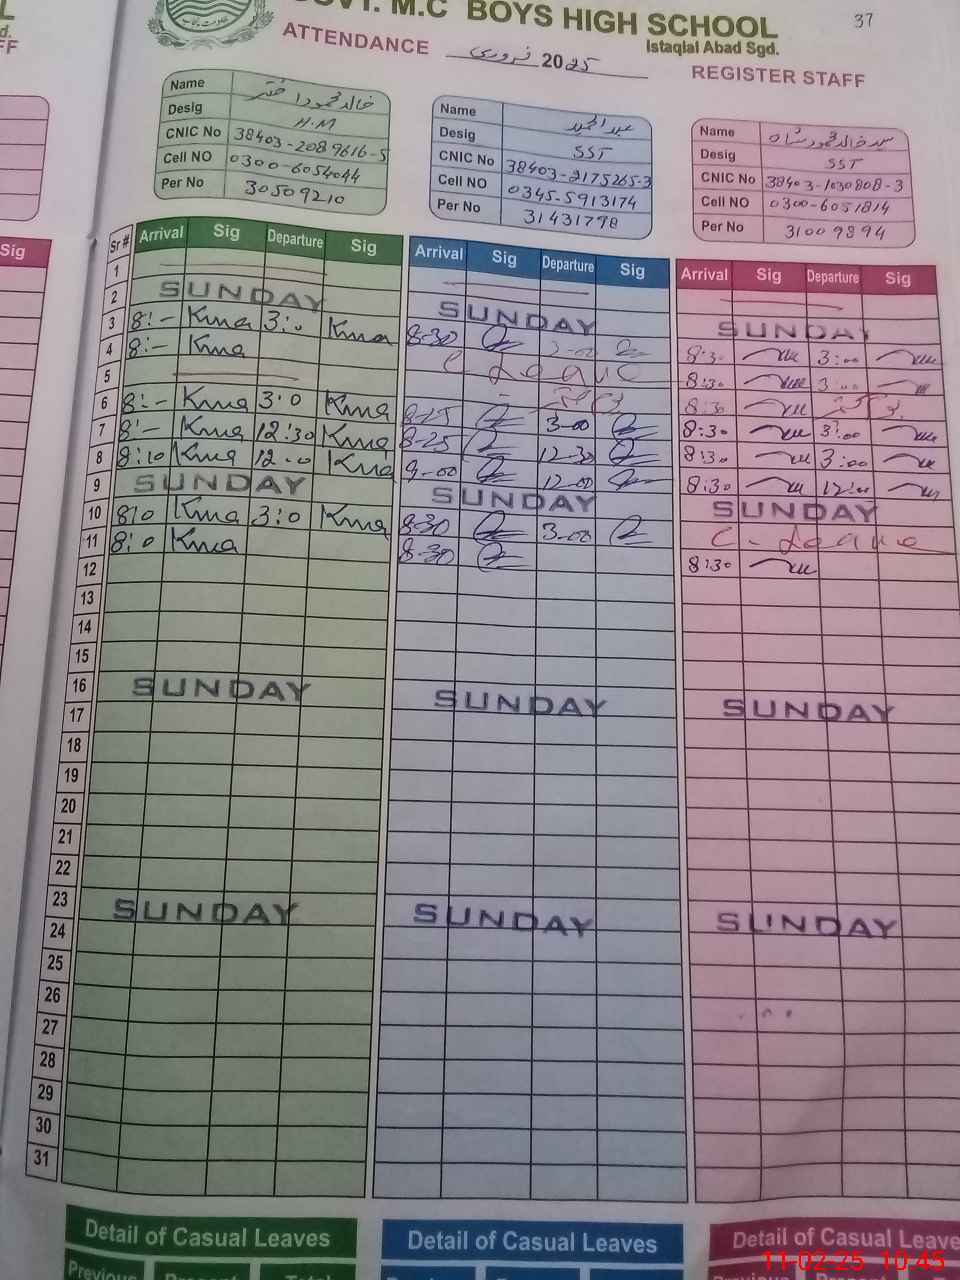 M.C BOYS HIGH SCHOOL
37
Istaqlal Abad Sgd.
ATTENDANCE فروری 2025 REGISTER STAFF
Name خالد محمود اختر
Desig H.M
CNIC No 38403-2089616-5
Cell NO 0300-6054044
Per No 30509210
Name عبدالمجید
Desig SST
CNIC No 38403-2175265-3
Cell NO 0345-5913174
Per No 31431798
Name سید خالد محمود شاہ
Desig SST
CNIC No 38403-1030808-3
Cell NO 0300-6051814
Per No 31009894
Sr # Arrival Sig Departure Sig Arrival Sig Departure Sig Arrival Sig Departure Sig
1
2 SUNDAY SUNDAY SUNDAY
3 8:- Kma 3:0 Kma 8-30 3-00 8:30 3:00
4 8:- Kma C Leave 8:30 3:00
5 8:30
6 8:- Kma 3:0 Kma 8-25 3-00 8:30 3:00
7 8:- Kma 12:30 Kma 8-25 12-30 8:30 3:00
8 8:10 Kma 12-0 Kma 9-00 12-00 8:30 12:00
9 SUNDAY SUNDAY SUNDAY
10 810 Kma 3:0 Kma 8-30 3-00 C-Leave
11 8:0 Kma 8-30 8:30
12
13
14
15
16 SUNDAY SUNDAY SUNDAY
17
18
19
20
21
22
23 SUNDAY SUNDAY SUNDAY
24
25
26
27
28
29
30
31
Detail of Casual Leaves Detail of Casual Leaves Detail of Casual Leave
Previous Total
11-02-25 10:45